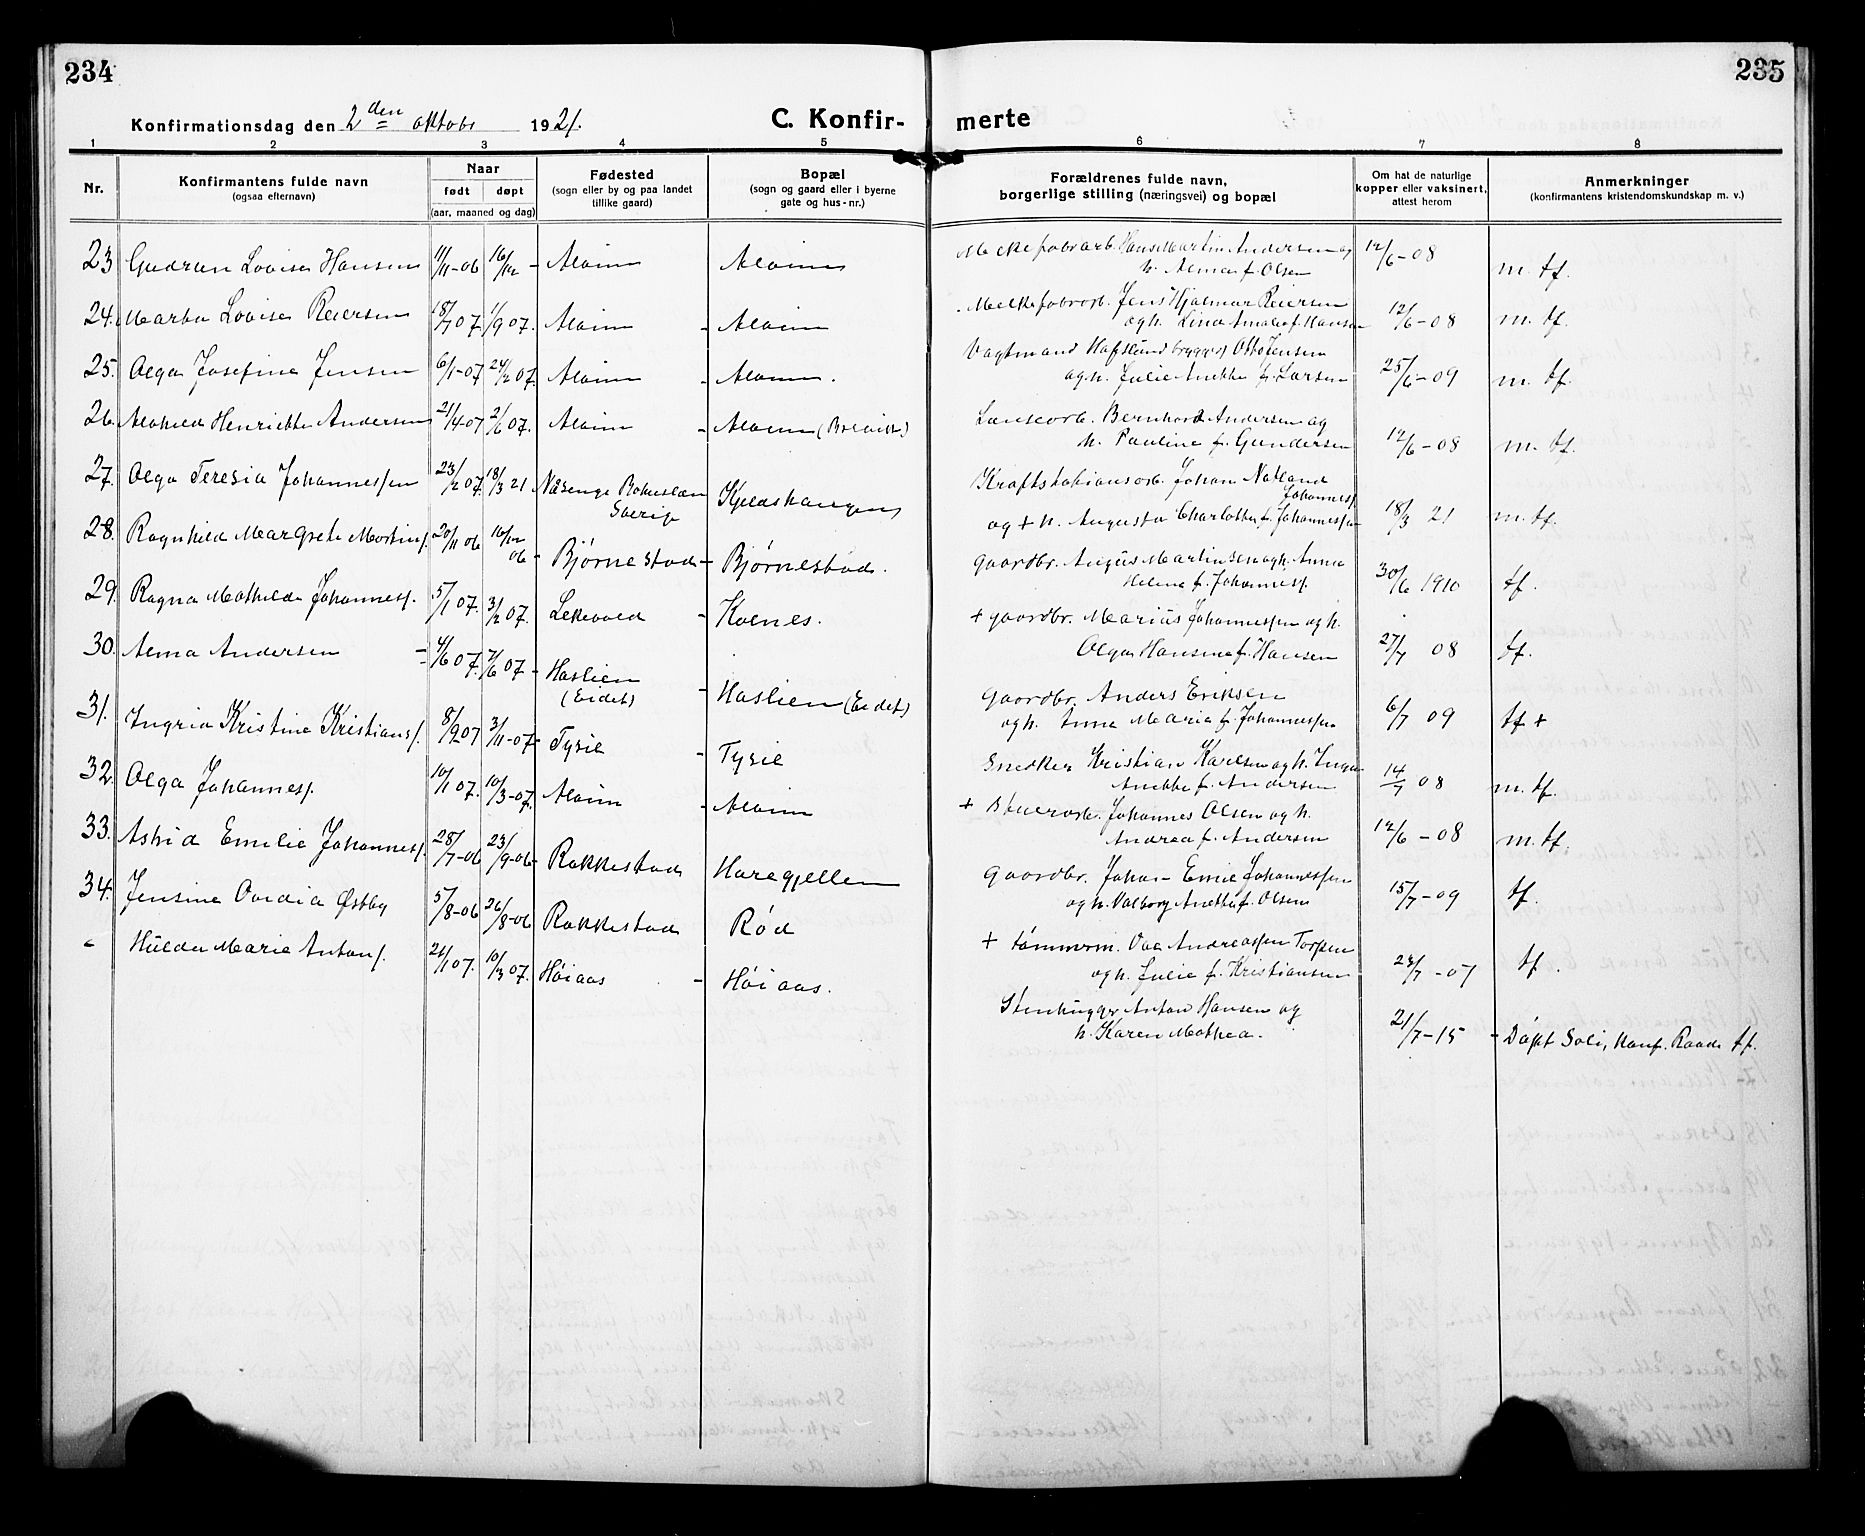 234
235
Konfirmationsdag den 2den oktobr 1921.
C. Konfir- merte
1 2 3 4 5 6 7 8
Nr.
Konfirmantens fulde navn
(ogsaa efternavn)
Naar
født døpt
(aar, maaned og dag)
Fødested
(sogn eller by og paa landet
tillike gaard)
Bopæl
(sogn og gaard eller i byerne
gate og hus-nr.)
Forældrenes fulde navn,
borgerlige stilling (næringsvei) og bopæl
Om hat de naturlige
kopper eller vaksinert,
attest herom
Anmerkninger
(konfirmantens kristendomskundskap m. v.)
23 Gudrun Lovise Hansen 11/11-06 16/12 - Aloim Aloim Melkefabrarb. Hans Martin Andersen og 12/6-08 m. tf.
h. Alma f. Olsen
24. Martha Lovise Reiersen 18/7 07. 1/9 07. Aloim - Aloim Melkefabrarb. Jens Hjalmar Reiersen 12/6-08 m. tf.
og h. Lina Amalie f. Hansen
25. Olga Josefine Jensen 6/1-07 24/2 07. Aloim - Aloim. Vagtmand Hafslund brygge Otto Jensen 25/6-09 m. tf.
og h. Julie Anette f. Larsen
26. Henriette Andersen 21/4-07 2/6 07. Aloim - Aloim Lænsearb. Bernhard Andersen og 12/6-08 m. tf.
h. Pauline f. Gundersen
27. Olga Teresia Johannessen 23/2 07. 18/3 21 Näsenge Bohuslän
Sverig Kraftstationsarb. Johan Natland
Johanness.
og + h. Augusta Charlotta f. Johannessen 18/3 21 m. tf.
28. Ragnhild Margrete Martins. 20/11 06 16/12 06 - Bjørnestad - Bjørnestad. gaardbr. August Martinsen og h. Anna 30/6 1910 tf.
Helene f. Johanness.
29. Ragna Mathilde Johanness. 5/1 07. 3/2 07. Lekevold - Kolnes. + gaardbr. Marius Johannessen og h. 27/7 08 tf.
Olga Hansine f. Hansen
30. Alma Andersen 4/6 07. 7/6 07 - Haslien
(Eidet) - Haslien (Eidet) Gaardbr. Anders Eriksen 6/7 09 tf +
og h. Anna Maria f. Johannessen
31. Ingrid Kristine Kristians. 8/9 07 3/11-07- Tysil - Tysil Snedker Kristian Karlsen og h. Inga 14/7 08 m. tf.
Anette f. Andersen
32. Olga Johanness. 10/1 07. 10/3-07. Aloim - Aloim + Johannes Olsen og h. 12/6-08 m. tf.
Andrea f. Andersen
33. Astrid Emilie Johanness. 28/7-06 23/9-06- Rakkestad Haregjellen Gaardbr. Johan Emil Johannessen 15/7-09 tf.
og h. Valborg Anette f. Olsen
34. Jensine Ovidia Østby 5/8-06 26/8-06 Rakkestad Rød + tømmerm. Ole Andreassen Torpen 23/7-07 tf.
og h. Julie f. Kristiansen
" Hulda Marie Antons. 21/1 07. 10/3 07. Høiaas - Høiaas. Stenhugger Anton Hansen og 21/7-15 - Døpt Soli, konf. Raade tf.
h. Karen Mathea.